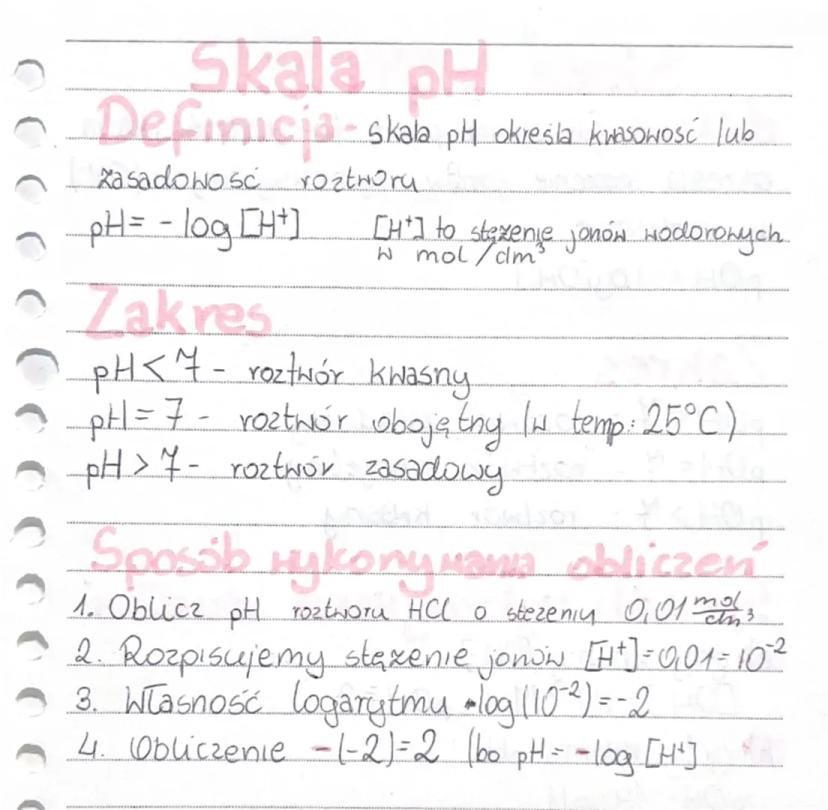 Skala pH
Definicja - skala pH określa kwasowość lub
zasadowość roztworu
pH = - log [H⁺] [H⁺] to stężenie jonów wodorowych
w mol/dm³
Zakres
pH < 7 - roztwór kwasny
pH = 7 - roztwór obojętny (w temp: 25°C)
pH > 7 - roztwór zasadowy
Sposób wykonywania obliczeń
1. Oblicz pH roztworu HCl o stezeniu 0,01 mol/dm³
2. Rozpisujemy stężenie jonów [H⁺]=0,01=10⁻²
3. Własność logarytmu log(10⁻²)=-2
4. Obliczenie -(-2)=2 (bo pH = -log [H⁺]